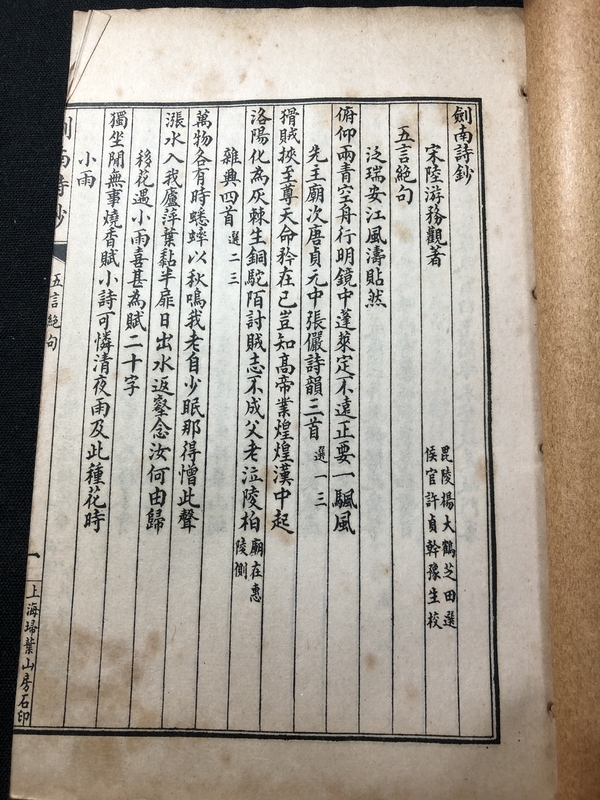 劍南詩鈔
宋陸游務觀著
毘陵楊大鶴芝田選
候官許貞幹豫生校
五言絶句
泛瑞安江風濤貼然
俯仰兩青空舟行明鏡中蓬萊定不遠正要一颿風
先主廟次唐貞元中張儼詩韻三首 選一三
猾賊挾至尊天命矜在己豈知高帝業煌煌漢中起
洛陽化為灰棘生銅駝陌討賊志不成父老泣陵柏 廟在惠陵側
雜興四首 選二三
萬物各有時蟋蟀以秋鳴我老自少眠那得憎此聲
漲水入我廬萍葉黏半扉日出水返壑念汝何由歸
移花遇小雨喜甚為賦二十字
獨坐閒無事燒香賦小詩可憐清夜雨及此種花時
小雨
劍南詩鈔
五言絶句
一
上海埽葉山房石印